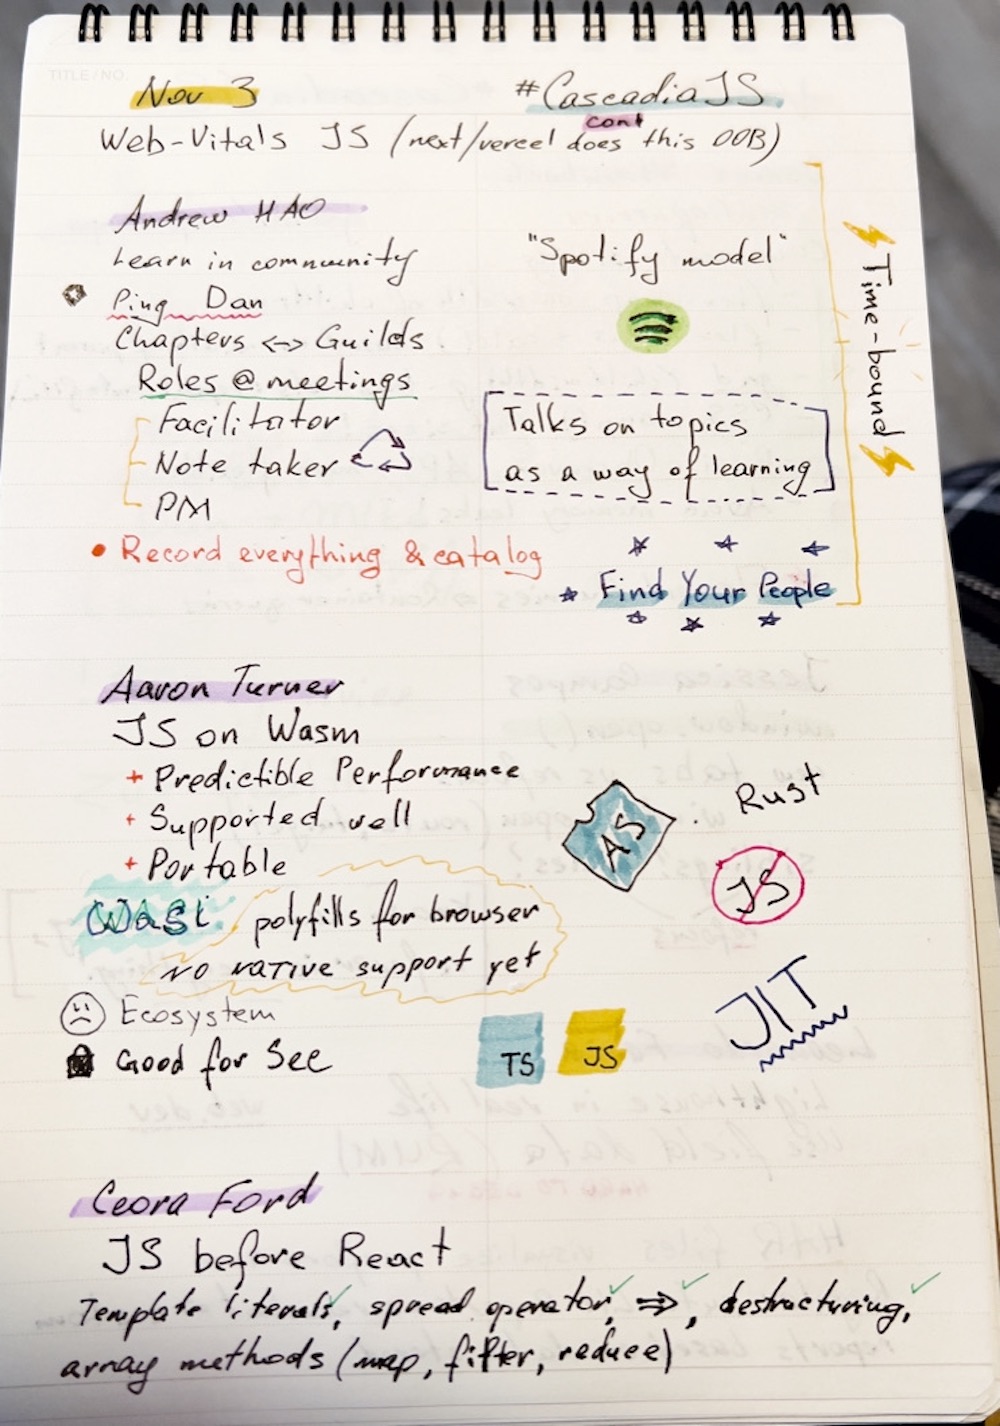 TITLE/NO.
Nov 3
#CascadiaJS
cont
Web-Vitals JS (next/vercel does this OOB)
Andrew HAO
Learn in community
Ping Dan
Chapters <-> Guilds
Roles @ meetings
Facilitator
Note taker
PM
• Record everything & catalog
"Spotify model"
Talks on topics
as a way of learning
Find Your People
Time-bound
Aaron Turner
JS on Wasm
+ Predictible Performance
+ Supported well
+ Portable
Wasi polyfills for browser
NO NATIVE support yet
Ecosystem
Good for Sec
AS
Rust
JS
JIT
TS
JS
Ceora Ford
JS before React
Template literals, spread operator, =>, destructuring,
array methods (map, filter, reduce)